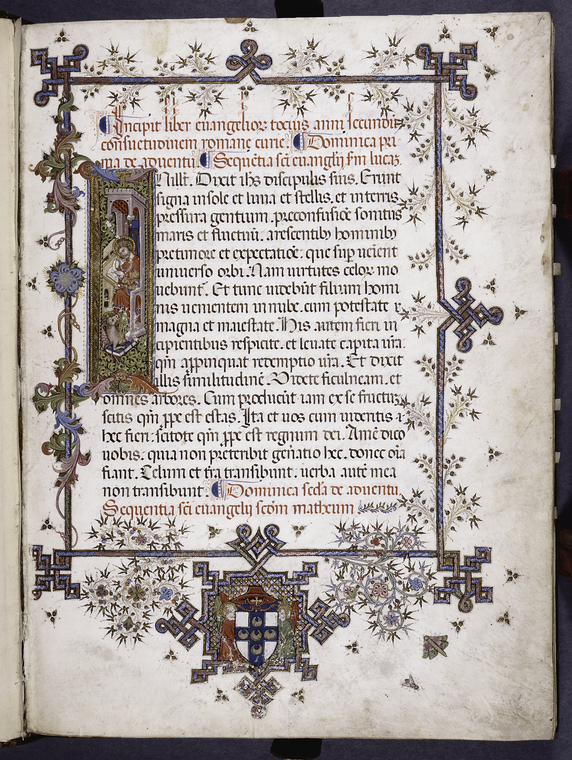 Incipit liber euangelior tocius anni secundu
consuetudinem romane curie. Dominica pri
ma de aduentu Sequētia sci euangelij fm lucaz
N illt. Dixit ihs discipulis suis. Erunt
signa in sole et luna et stellis. et in terris
pressura gentium. pre confusiōe sonitus
maris et fluctuū. arescentib hominib
pre timore et expectatiōe. que sup uēient
uniuerso orbi. Nam uirtutes celor mo
uebunt. Et tunc uidebūt filium homi
nis uenientem in nube. cum potestate
magna et maiestate. His autem fieri in
cipientibus respicite. et leuate capita ura.
qm appinquat redemptio ura. Et dixit
illis similitudinē. Videte ficulneam. et
omnes arbores. Cum producūt iam ex se fructuz
scitis qm ppe est estas. Ita et uos cum uideritis
hec fieri. scitote qm ppe est regnum dei. Amē dico
uobis. quia non preteribit gen̄atio hec. donec oīa
fiant. Celum et tra transibunt. uerba autē mea
non transibunt. Dominica scda de aduentu
Sequentia sci euangelij scdm matheum